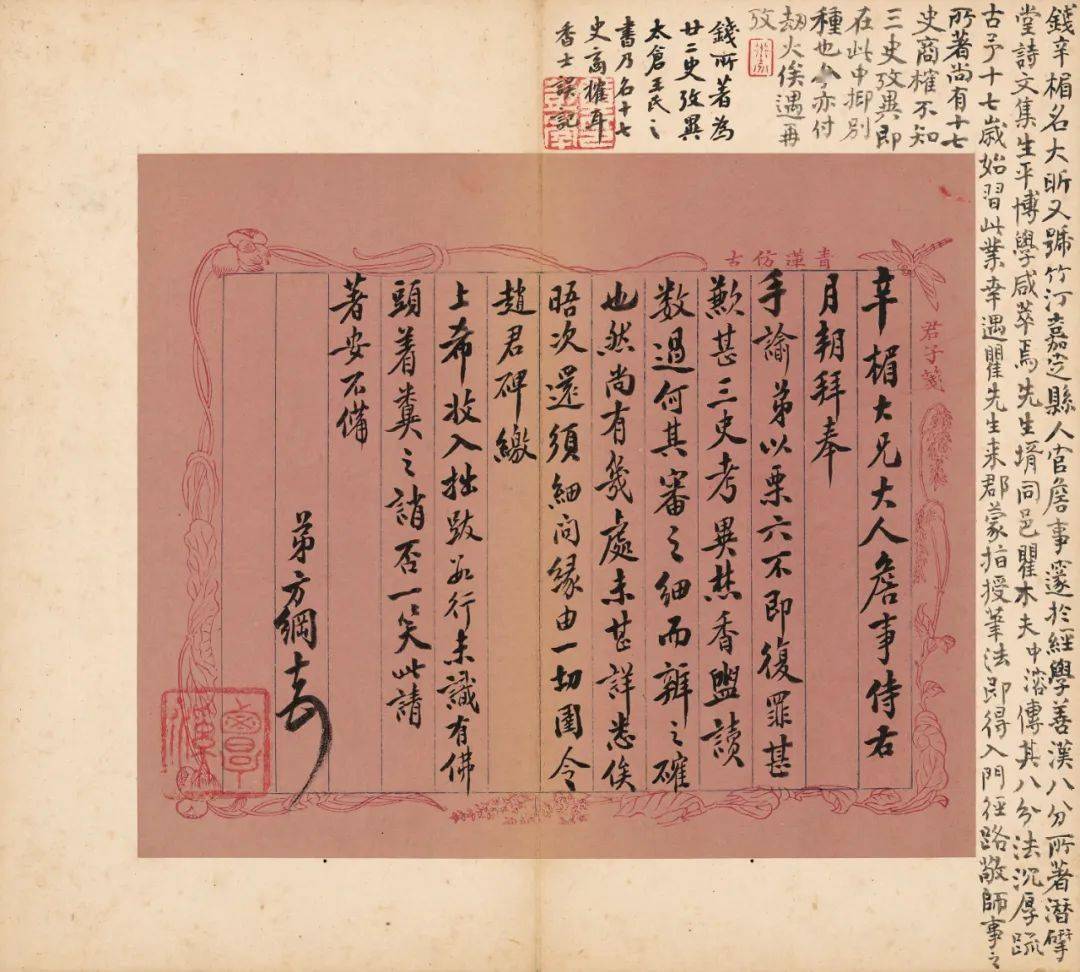 錢辛楣名大昕又號竹汀嘉定縣人官詹事邃於經學善漢八分所著潛揅
堂詩文集生平博學咸萃焉先生壻同邑瞿木夫中溶傳其八分法沉厚疏
古予十七歲始習此業幸遇瞿先生来郡蒙指授筆法即得入門徑路敬師事之
所著尚有十七
史商榷不知
三史攷異即
在此中抑別
種也今亦付
劫火俟遇再
攷
錢所著為
廿二史攷異
太倉王氏之
書乃名十七
史商榷耳
香士誤記
青蓮仿古
君子箋
辛楣大兄大人詹事侍右
月朔拜奉
手諭弟以栗六不即復罪甚
歉甚三史考異焚香盥讀
数過何其審之細而辨之確
也然尚有幾處未甚詳悉俟
晤次還須細问緣由一切圖令
趙君碑繳
上希收入拙跋數行未識有佛
頭着糞之誚否一笑此請
著安不備
弟方綱